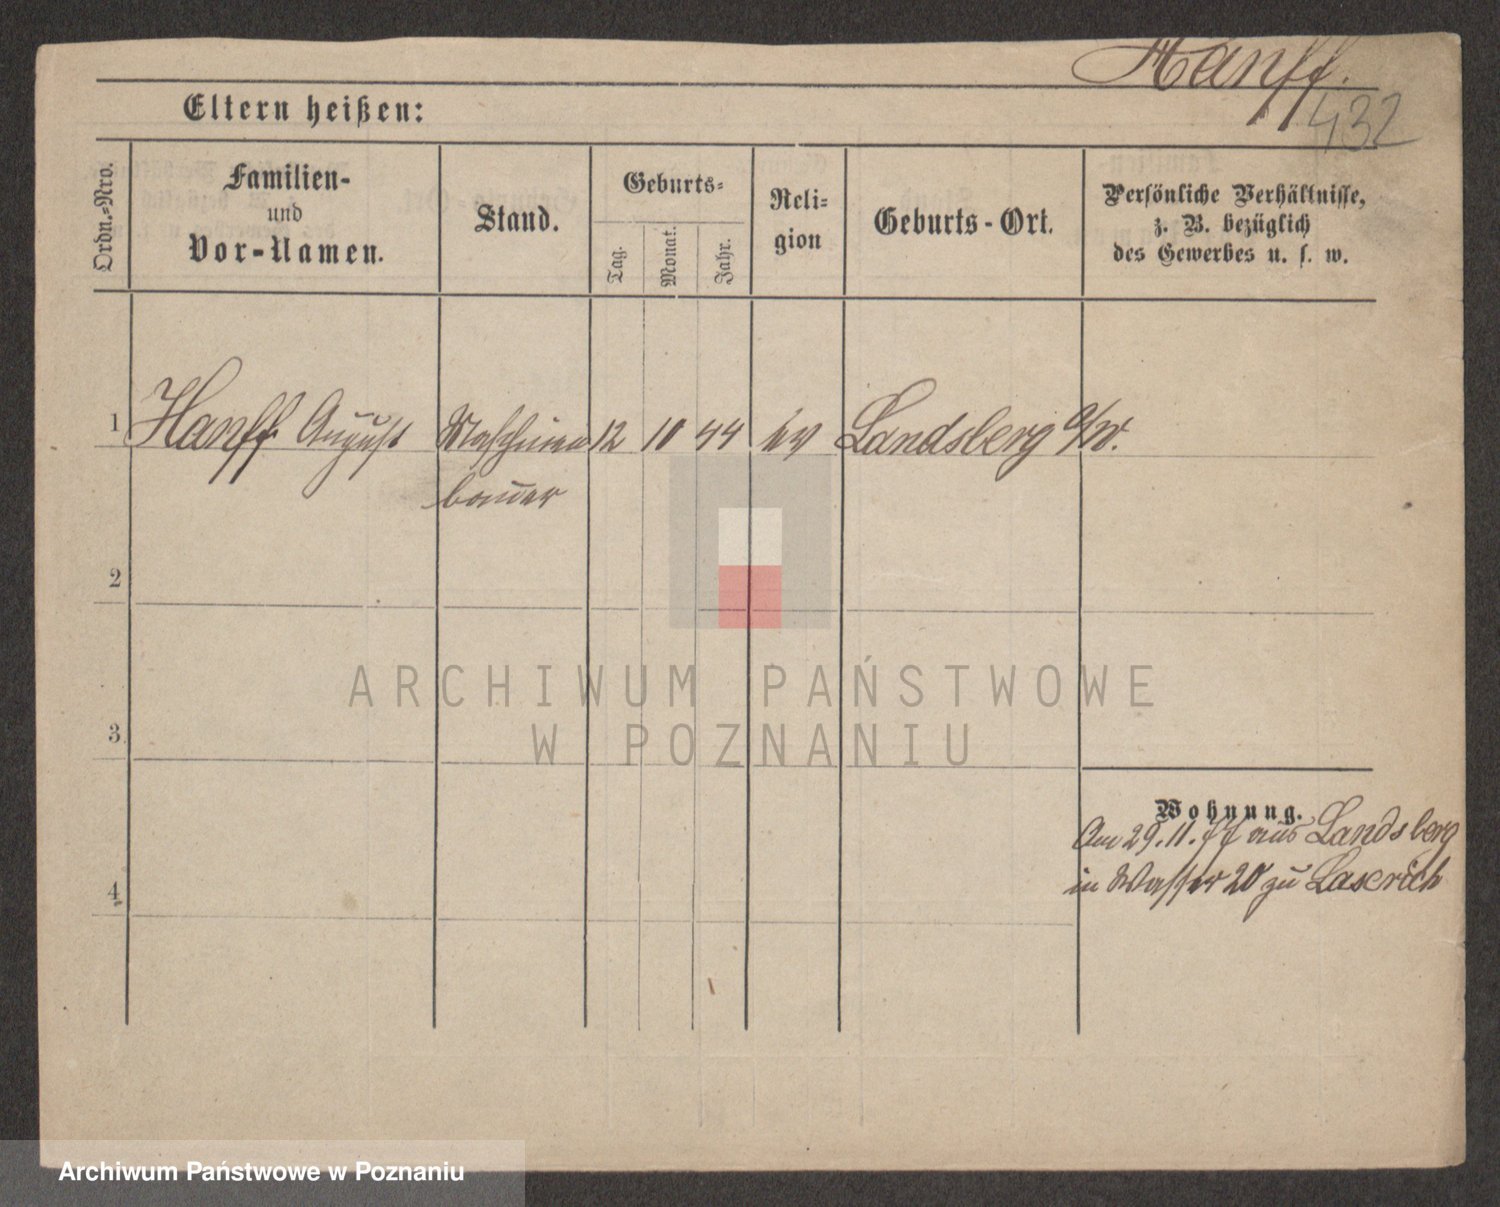 Hanff.
432
Eltern heißen:
Ordn.=Nro.
Familien-
und
Vor-Namen.
Stand.
Geburts=
Tag.
Monat.
Jahr.
Reli=
gion
Geburts-Ort.
Persönliche Verhältnisse,
z. B. bezüglich
des Gewerbes u. s. w.
1 Hanff August Maschinen 12 10 44 ev Landsberg a/W.
bauer
2
3
4
Wohnung.
Am 29.11. aus Landsberg
in Wasser 20 zu
ARCHIWUM PAŃSTWOWE
W POZNANIU
Archiwum Państwowe w Poznaniu